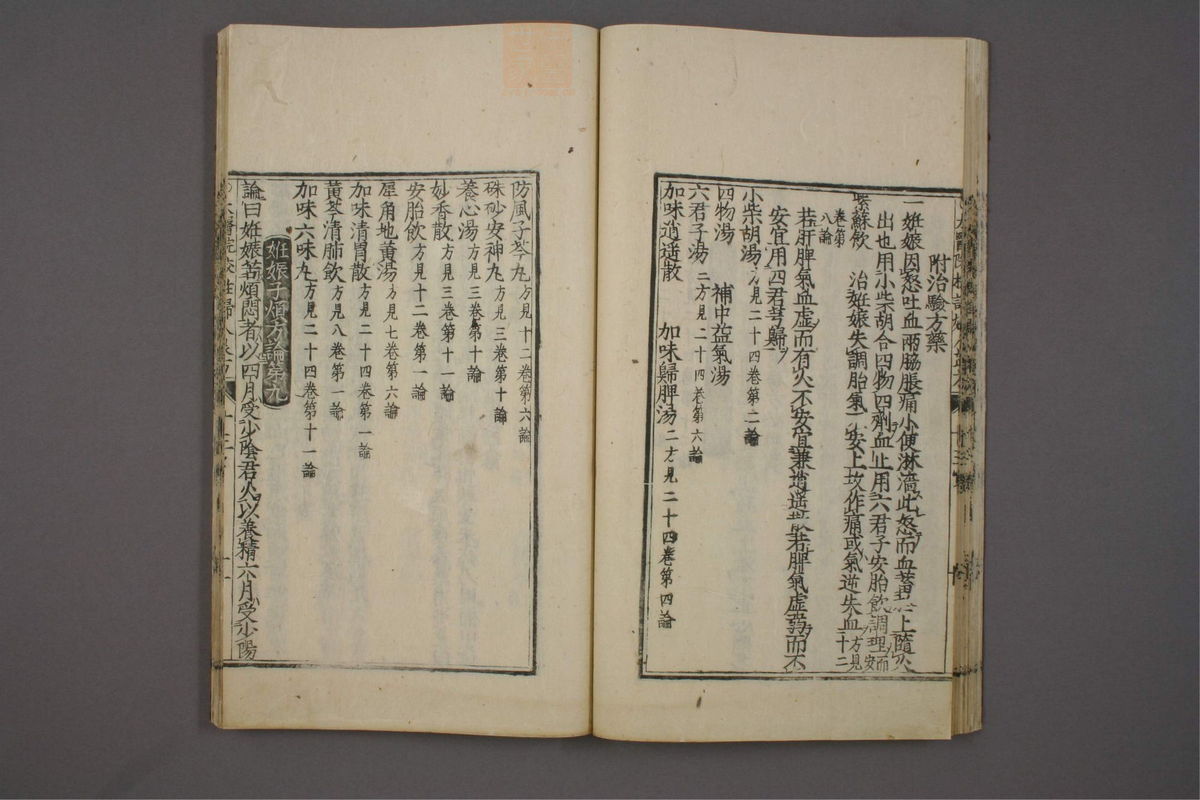 附治驗方藥
一妊娠因怒吐血兩脇脹痛小便淋濇此怒而血蓄上隨火
出也用小柴胡合四物四劑血止用六君子安胎飲調理而安
紫蘇飲 治妊娠失調胎氣不安上攻作痛或氣逆失血方見十二
卷第八論
若肝脾氣血虛而有火不安宜兼逍遙散若脾氣虛弱而不
安宜用四君芎歸
小柴胡湯方見二十四卷第二論
四物湯 補中益氣湯
六君子湯二方見二十四卷第六論
加味逍遙散 加味歸脾湯二方見二十四卷第四論
防風子芩丸方見十二卷第六論
硃砂安神丸方見三卷第十論
養心湯方見三卷第十論
妙香散方見三卷第十一論
安胎飲方見十二卷第一論
犀角地黃湯方見七卷第六論
加味清胃散方見二十四卷第一論
黃芩清肺飲方見八卷第一論
加味六味丸方見二十四卷第十一論
妊娠子煩方論第九
論曰妊娠苦煩悶者以四月受少陰君火以養精六月受少陽